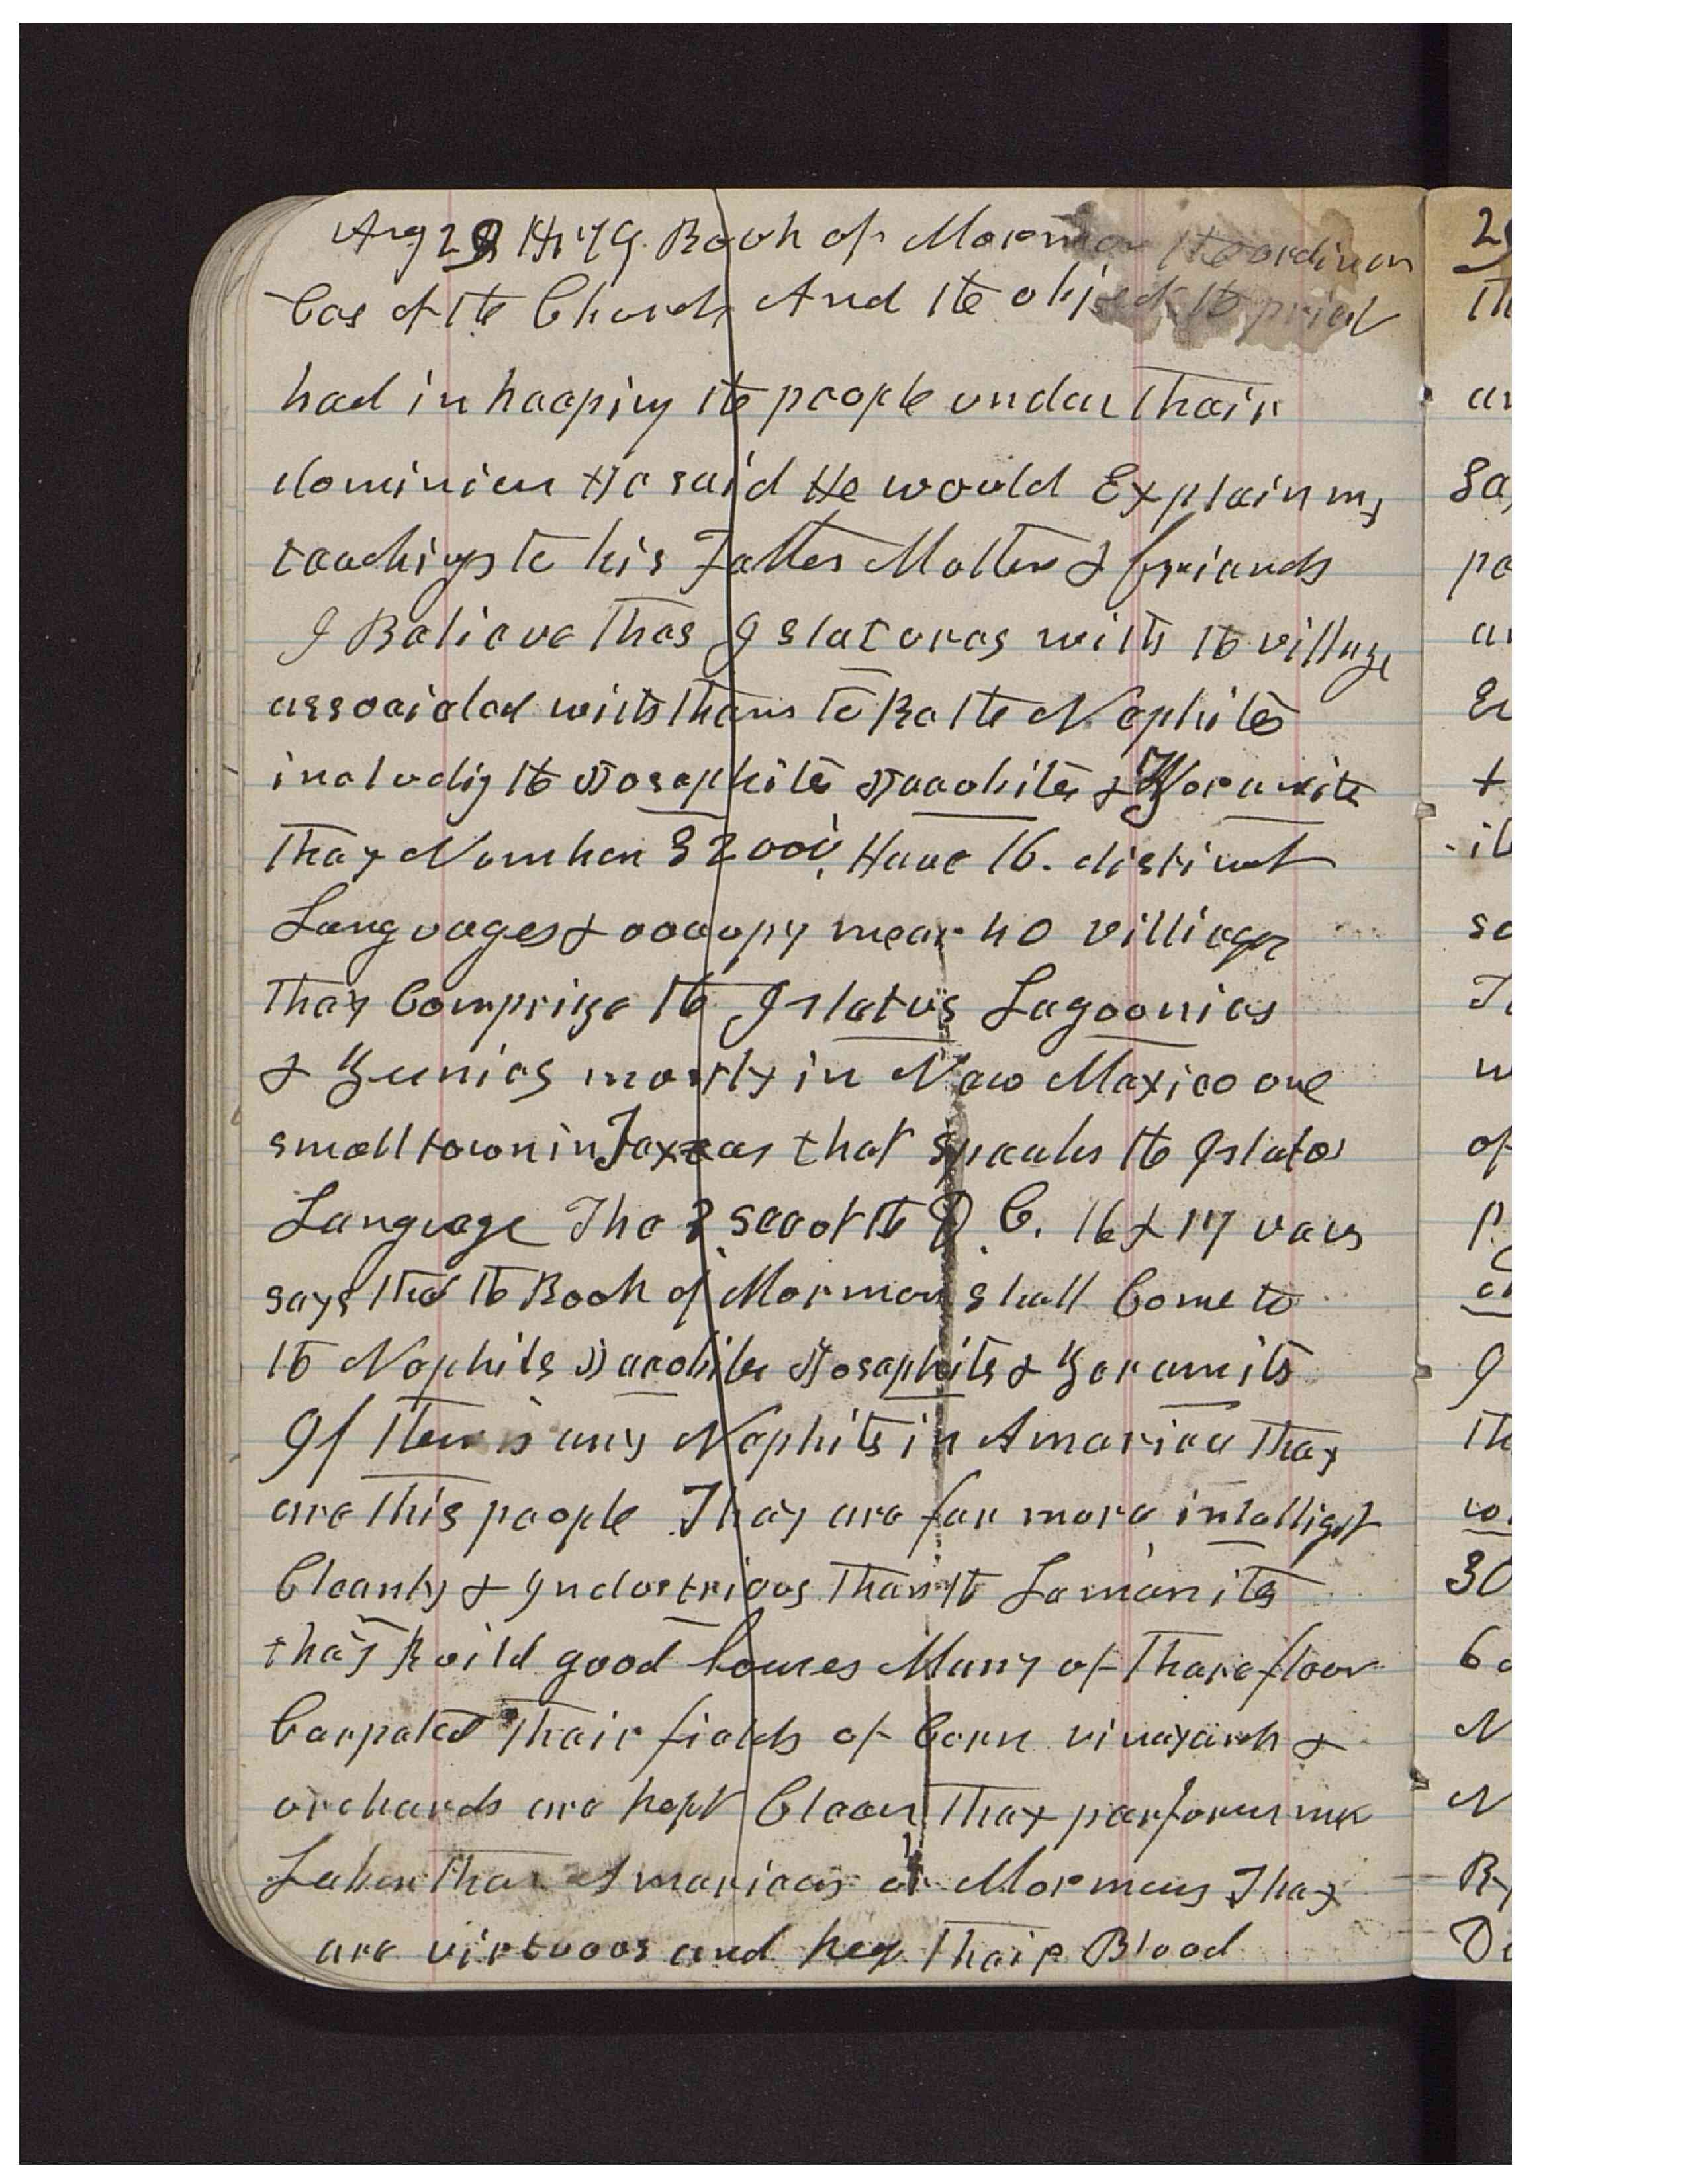 Aug 29 1879. Book of Mormon the ordinan
ces of the Church And the object the priest
had in keeping the people under their
dominion He said He would Explain my
teachings to his Father Mother & friends
I Believe thes Islatores with the village
associated with them to Be the Nephites
includig the Josephite Jacobites & Zoramite
They Number 32000, Have 16. distinct
Languages & occupy near 40 villiages
They Comprize the Islatus Lagoonies
& Zunies mostly in New Mexico one
small town in Texas that speaks the Islatos
Language The 3 sec of the D. C. 16 & 17 vers
says that the Book of Mormon shall Come to
the Nephits Jacobites Josephits & Zoramits
If there is any Nephits in America they
are this people They are far more intelligt
Cleanly & Industrious than the Lamanits
they Build good houses Many of there floor
Carpeted their fields of Corn vineyards &
orchards are kept Clean They perform more
Labor than Americans or Mormons They
are virtuous and keep their Blood